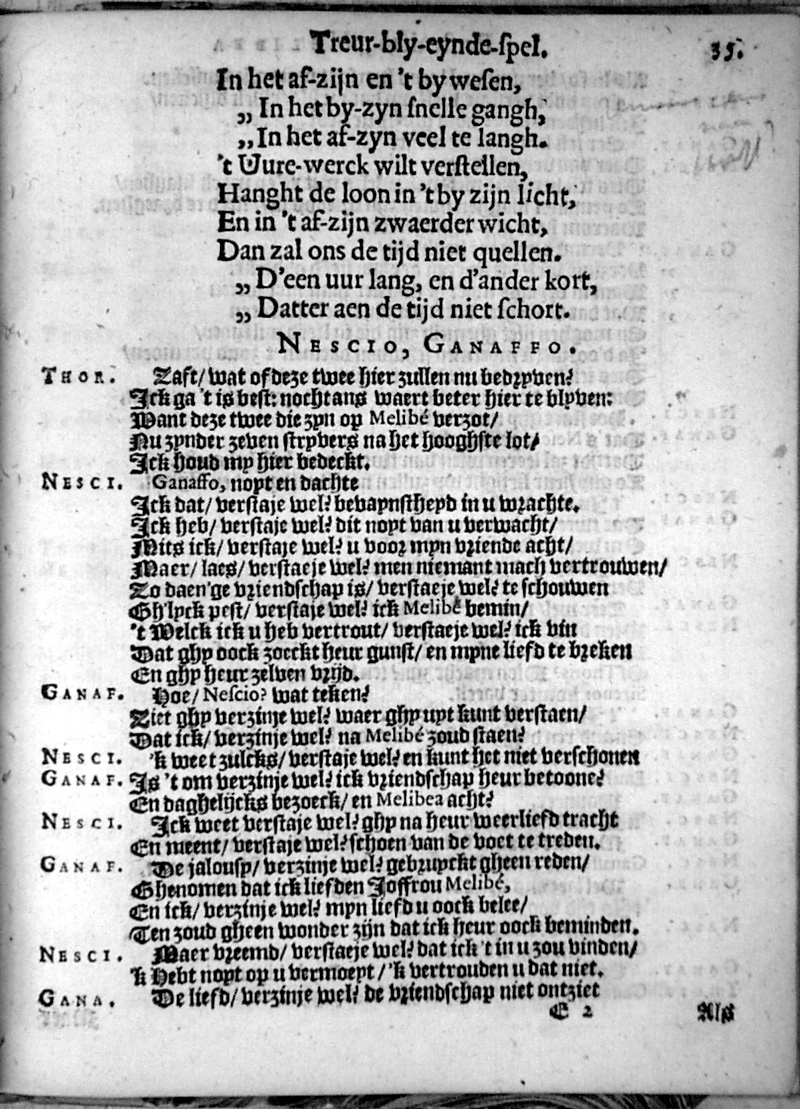 Treur-bly-eynde-spel. 35.
In het af-zijn en 't by wesen,
„ In het by-zyn snelle gangh,
„ In het af-zyn veel te langh.
't Uure-werck wilt verstellen,
Hanght de loon in 't by zijn licht,
En in 't af-zijn zwaerder wicht,
Dan zal ons de tijd niet quellen.
„ D'een uur lang, en d'ander kort,
„ Datter aen de tijd niet schort.
NESCIO, GANAFFO.
THOR. Zaft/ wat of deze twee hier zullen nu bedryven?
Ick ga 't is best: nochtans waert beter hier te blyven:
Want deze twee die zyn op Melibé verzot/
Nu zynder zeven stryvers na het hooghste lot/
Ick houd my hier bedeckt.
NESCI. Ganaffo, noyt en dachte
Ick dat/ verstaje wel? bevaynstheyd in u wrachte.
Ick heb/ verstaje wel? dit noyt van u verwacht/
Mits ick/ verstaje wel? u voor myn vriende acht/
Maer/ laes/ verstaeje wel? men niemant mach vertrouwen/
Zo daen'ge vriendschap is/ verstaeje wel? te schouwen
Gh'lyck pest/ verstaje wel? ick Melibé bemin/
't Welck ick u heb vertrout/ verstaeje wel? ick vin
Dat ghy oock zoeckt heur gunst/ en myne liefd te breken
En ghy heur zelven vrijd.
GANAF. Hoe/ Nescio? wat teken?
Ziet ghy verzinje wel? waer ghy uyt kunt verstaen/
Dat ick/ verzinje wel? na Melibé zoud staen?
NESCI. 'k weet zulcks/ verstaje wel? en kunt het niet verschonen
GANAF. Is 't om verzinje wel? ick vriendschap heur betoone?
En daghelijcks bezoeck/ en Melibea acht?
NESCI. Ick weet verstaje wel? ghy na heur weerliefd tracht
En meent/ verstaje wel? schoen van de voet te treden.
GANAF. De jalousy/ verzinje wel? gebruyckt gheen reden/
Ghenomen dat ick liefden Joffrou Melibé,
En ick/ verzinje wel? myn liefd u oock belee/
Ten zoud gheen wonder zijn dat ick heur oock beminden.
NESCI. Maer vreemd/ verstaeje wel? dat ick 't in u zou vinden/
'k Hebt noyt op u vermoeyt/ 'k vertrouden u dat niet.
GANA. De liefd/ verzinje wel? de vriendschap niet ontziet
E 2 Als